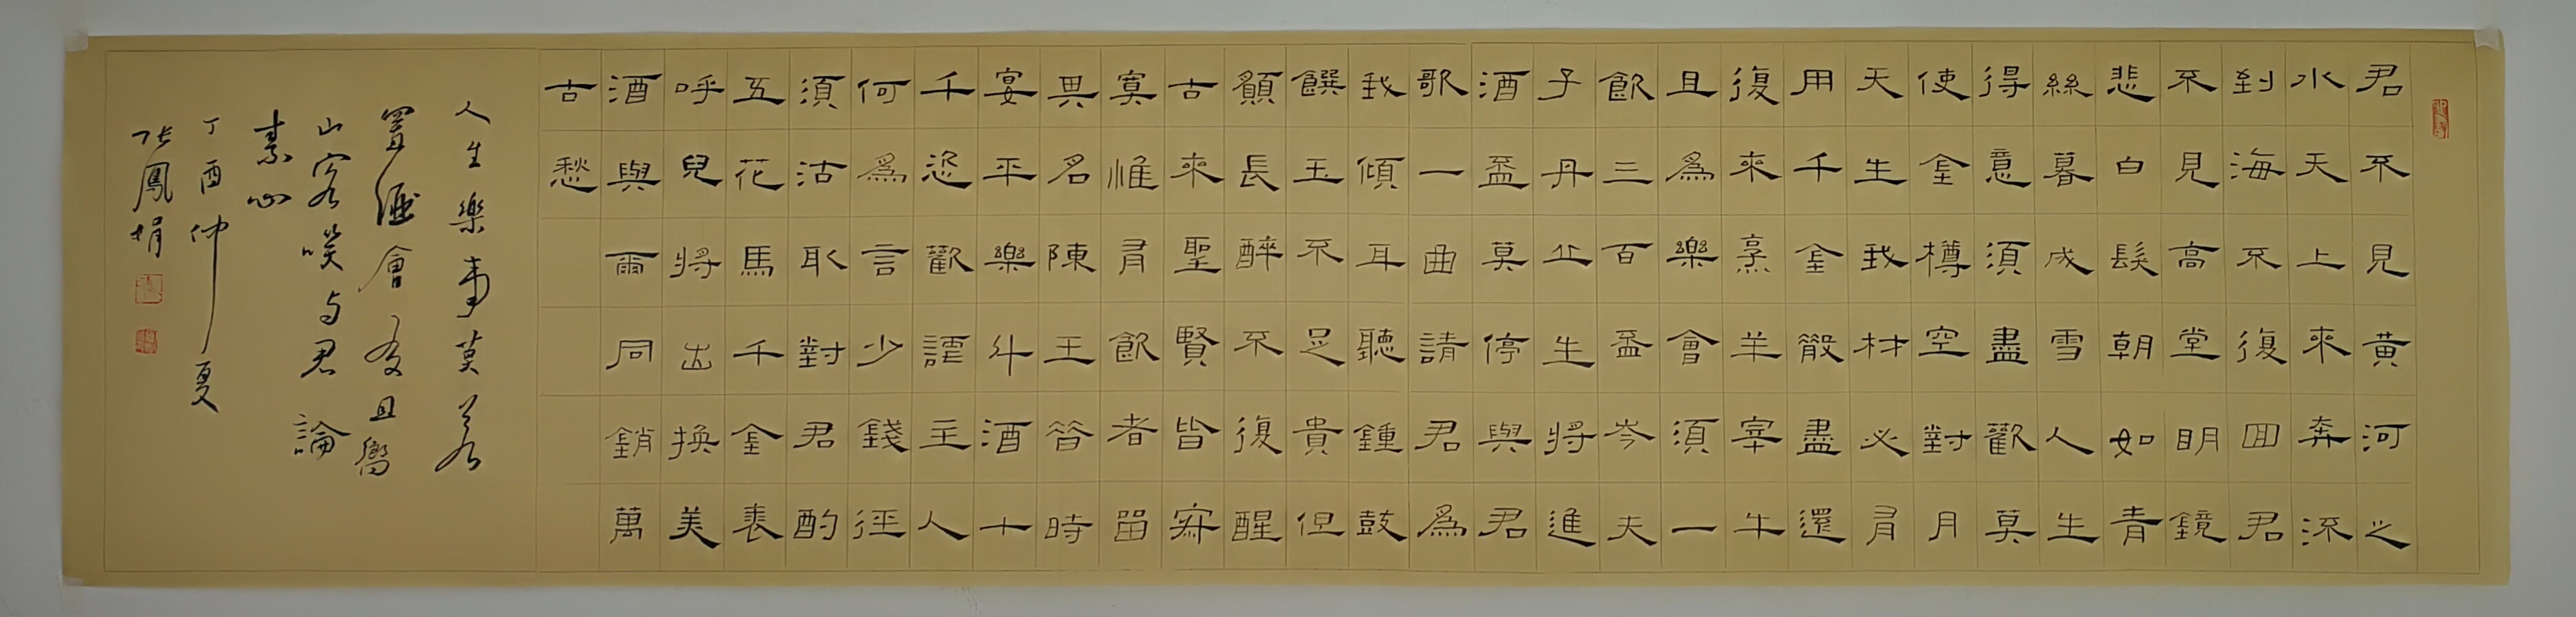 君不見黃河之
水天上來奔流
到海不復回君
不見高堂明鏡
悲白髮朝如青
絲暮成雪人生
得意須盡歡莫
使金樽空對月
天生我材必有
用千金散盡還
復來烹羊宰牛
且為樂會須一
飲三百盃岑夫
子丹丘生將進
酒盃莫停與君
歌一曲請君為
我傾耳聽鍾鼓
饌玉不足貴但
願長醉不復醒
古來聖賢皆寂
寞惟有飲者留
其名陳王昔時
宴平樂斗酒十
千恣歡謔主人
何為言少錢徑
須沽取對君酌
五花馬千金裘
呼兒將出換美
酒與爾同銷萬
古愁
人生樂事莫若
置酒會友且嚮
山客咲与君論
素心
丁酉仲夏
張鳳娟